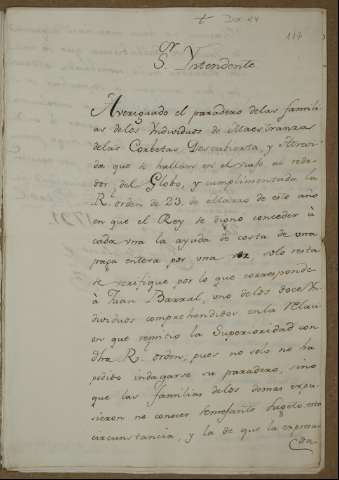 114
Sr. Yntendente
Averiguado el paradero de las famili-
as de los Yndividuos de Maestranza
de las Corbetas Descubierta, y Atrevi-
da que se hallan en el viaje al rede-
dor del Globo, y cumplimentada la
Rl. orden de 23. de Marzo de este año
en que el Rey se dignó conceder á
cada una la ayuda de costa de una
paga entera por una vez solo resta
se verifique por lo que corresponde
à Juan Barral, uno de los doce Yn
dividuos comprehendidos en la relaci
on que remitio la Superioridad con
dha Rl. orden, pues no solo no ha
podido indagarse su paradero, sino
que las familias de los demas expu-
sieron no conocer semejante sugeto: esta
circunstancia, y la de que la expresa
da